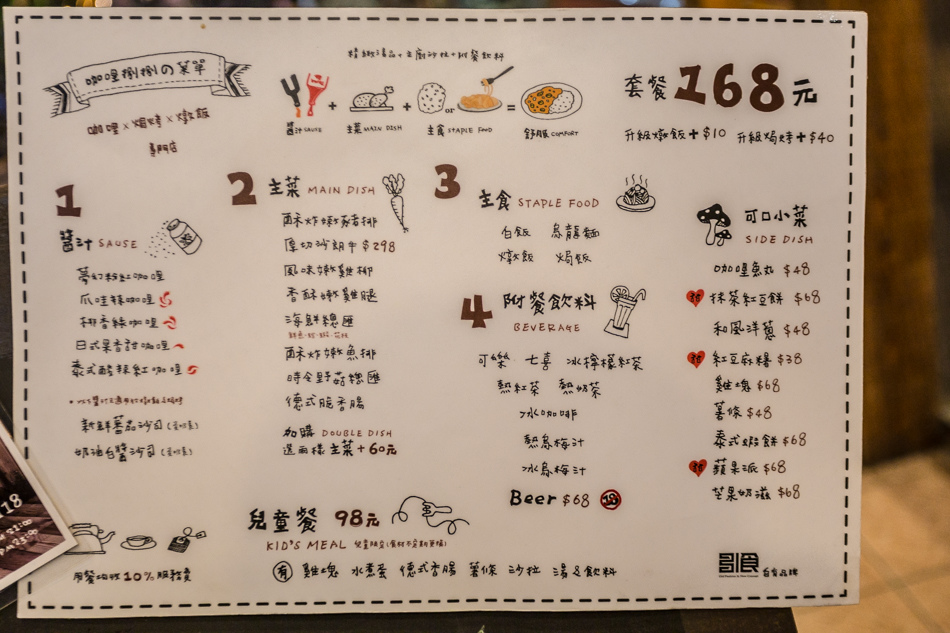 咖哩捌捌の菜單
咖哩×焗烤×燉飯
專門店
精緻湯品+主廚沙拉+附餐飲料
醬汁 SAUCE + 主菜 MAIN DISH + 主食 STAPLE FOOD or = 舒服 COMFORT
套餐168元
升級燉飯+$10 升級焗烤+$40
1
醬汁 SAUSE
夢幻粉紅咖哩
爪哇辣咖哩
椰香綠咖哩
日式果香甜咖哩
泰式酸辣紅咖哩
新鮮蕃茄沙司
奶油白醬沙司
用餐均收10%服務費
2 主菜 MAIN DISH
酥炸嫩豬排
厚切沙朗牛$298
風味嫩雞柳
香酥嫩雞腿
海鮮總匯
酥炸嫩魚排
時令野菇總匯
德式脆香腸
加購 DOUBLE DISH
選兩樣主菜+60元
3 主食 STAPLE FOOD
白飯 烏龍麵
燉飯 焗飯
4 附餐飲料
BEVERAGE
可樂 七喜 冰檸檬紅茶
熱紅茶 熱奶茶
冰咖啡
熱烏梅汁
冰烏梅汁
Beer $68 18
可口小菜
SIDE DISH
咖哩魚丸 $48
抹茶紅豆餅 $68
和風洋蔥 $48
紅豆麻糬 $38
雞塊 $68
薯條 $48
泰式蝦餅 $68
蘋果派 $68
芒果奶滋 $68
兒童餐 98元
KID'S MEAL
有 雞塊 水煮蛋 德式香腸 薯條 沙拉 湯&飲料
18